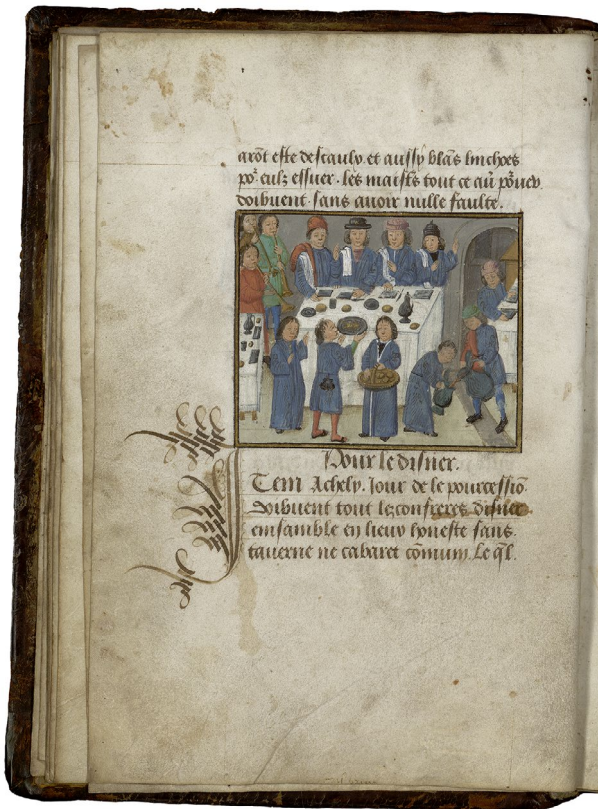 arōt este descauly. et aussy blās linchoes
po᷑ eulz essuer. les maist̄s tout ce aū po᷑uev̄
doibuent sans auoir nulle faulte.
Pour le disner.
Item Achely. Jour de le pourcessiō
doibuent tout lez confreres disner
ensamble en lieuv honeste sans.
tauerne ne cabaret cōmum. Le q̄l.